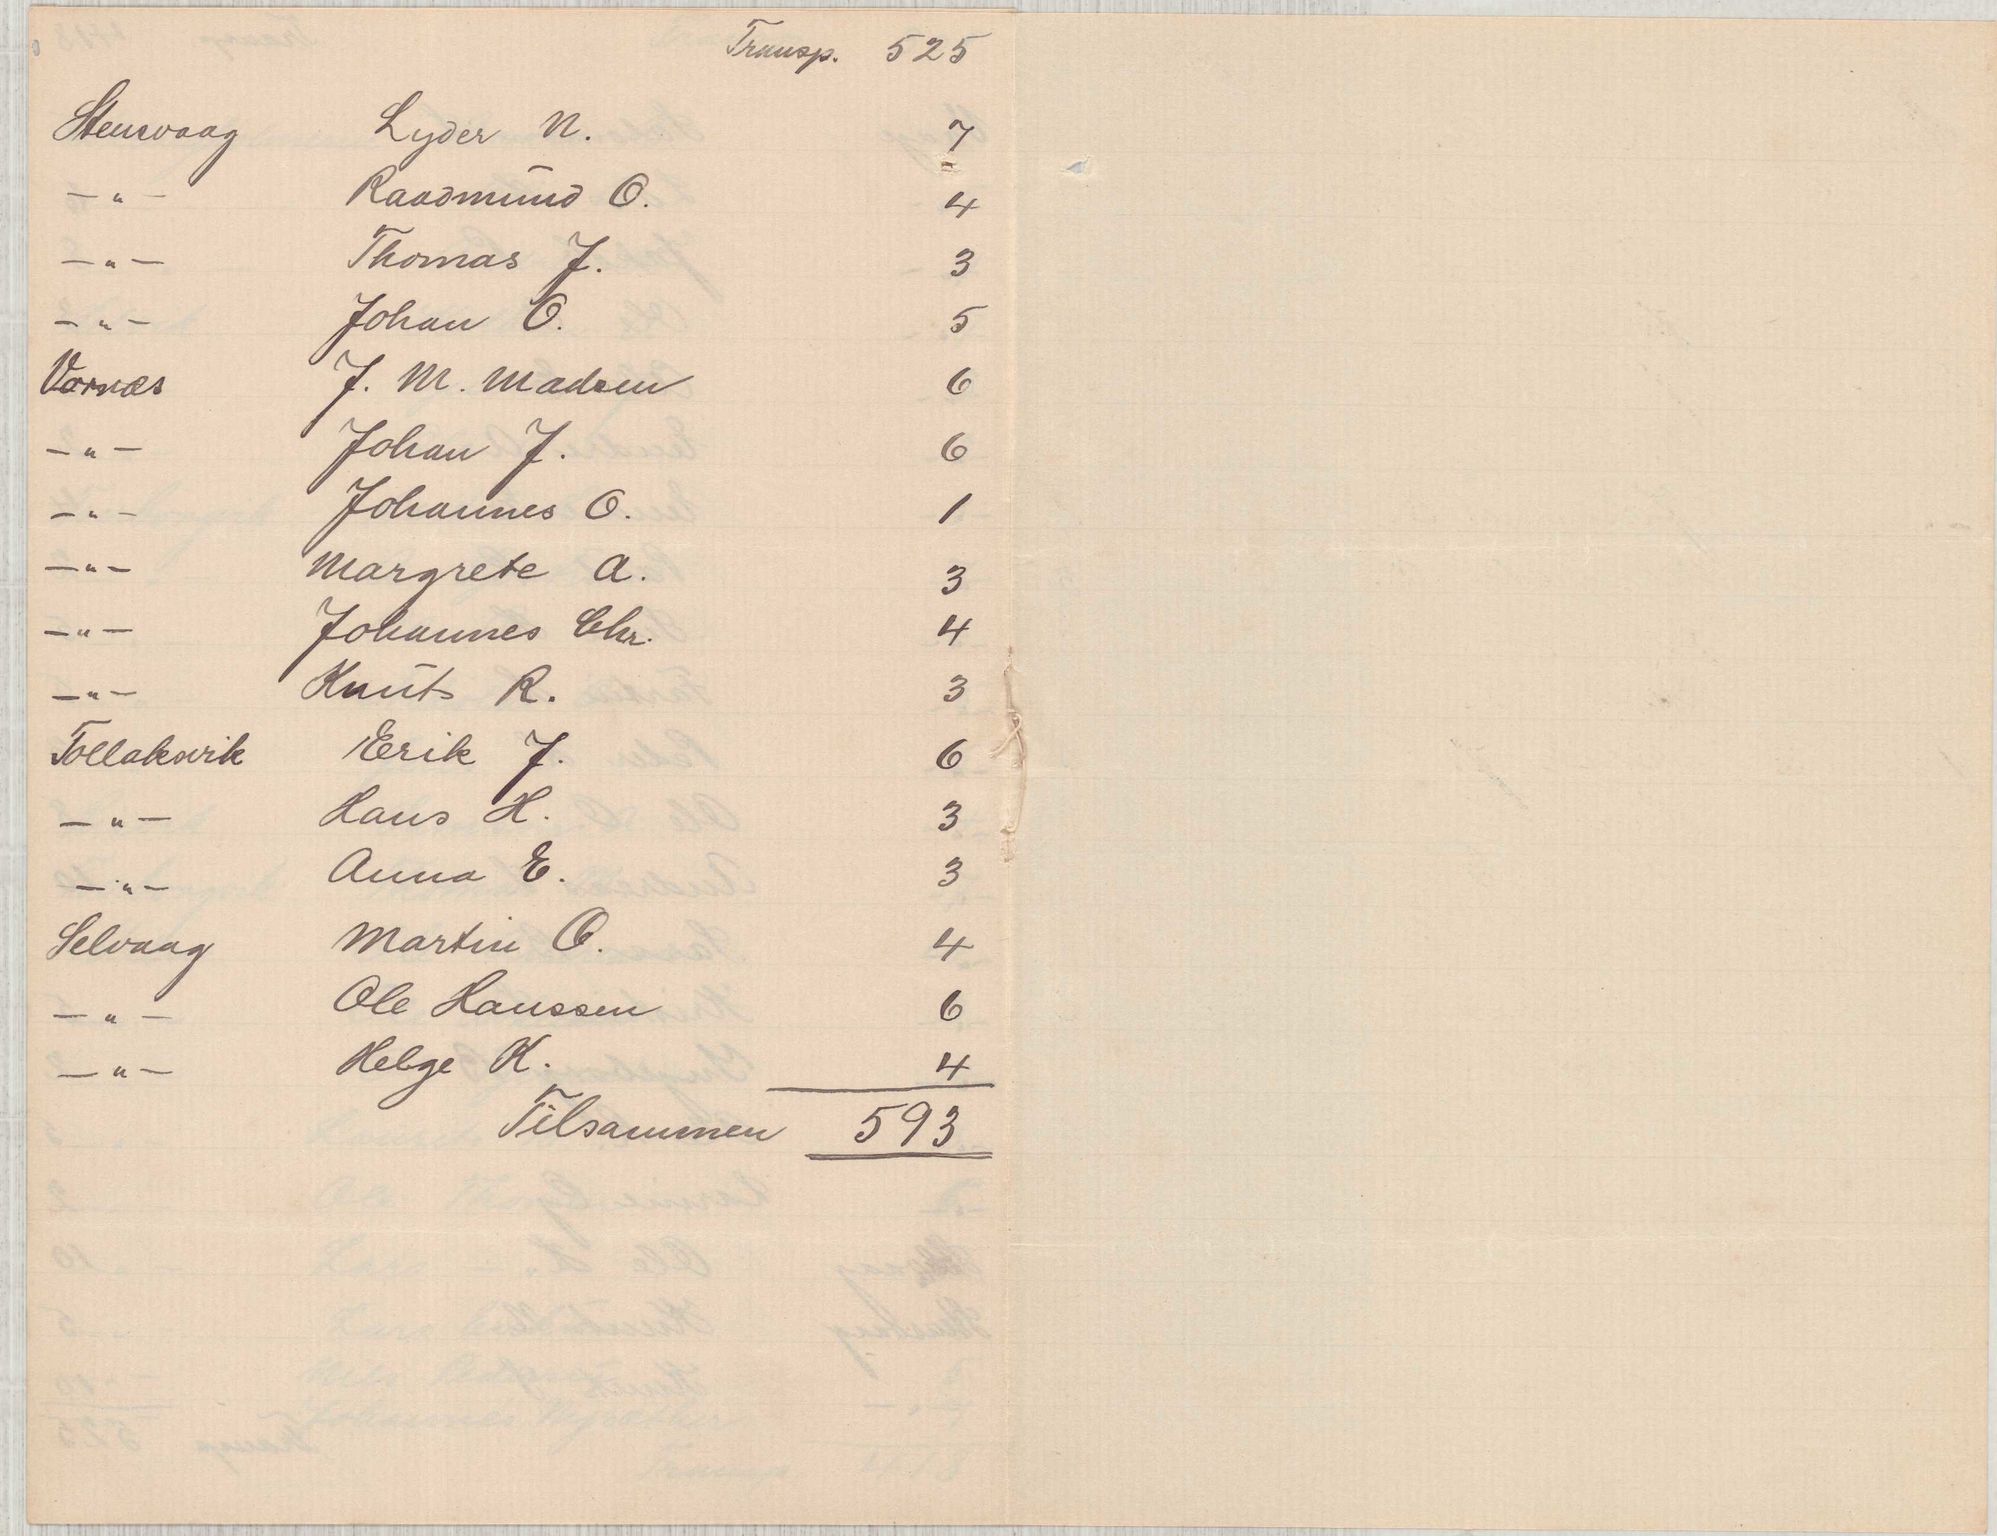 Transp. 525
Stensvaag Lyder N. 7
— " — Raadmund O. 4
— " — Thomas J. 3
— " — Johan O. 5
Vornæs J. M. Madsen 6
— " — Johan J. 6
— " — Johannes O. 1
— " — Margrete A. 3
— " — Johannes Chr. 4
— " — Knut R. 3
Tollaksvik Erik J. 6
— " — Hans H. 3
— " — Anna E. 3
Selvaag Martin O. 4
— " — Ole Hanssen 6
— " — Helge K. 4
Tilsammen 593